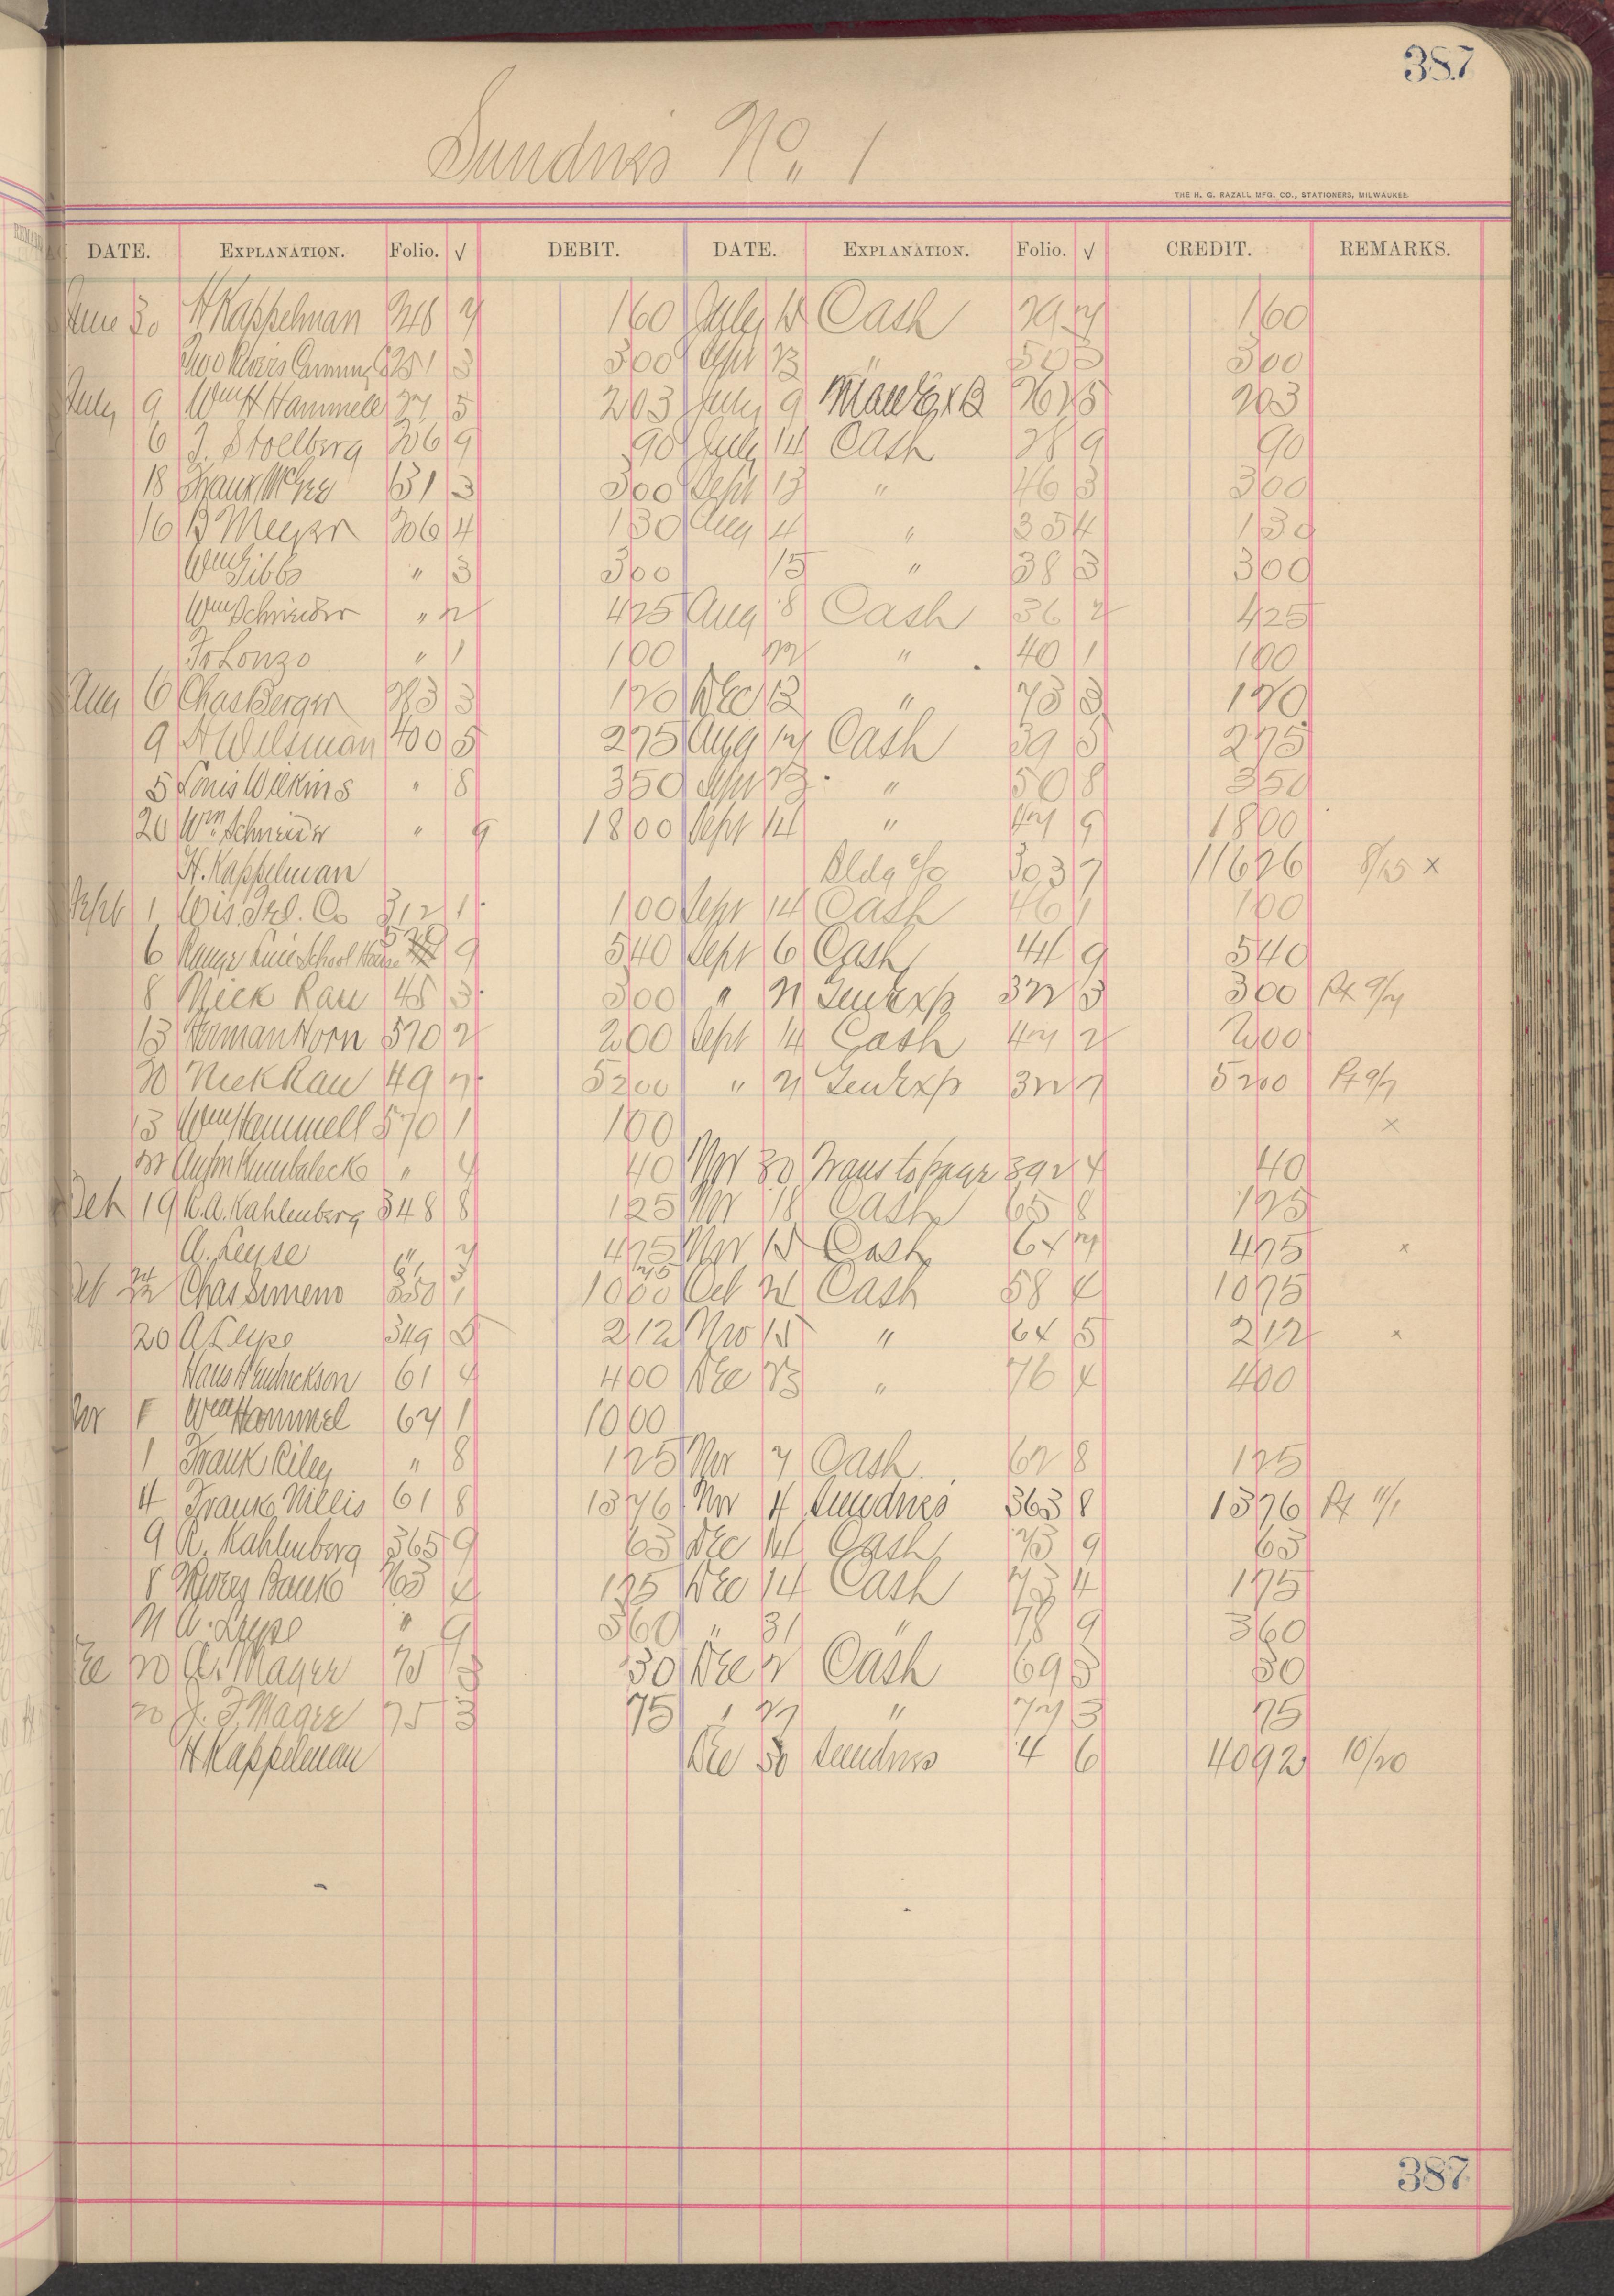 387
Sundries No. 1
THE H. G. RAZALL MFG. CO., STATIONERS, MILWAUKEE.
DATE. EXPLANATION. Folio. √ DEBIT. DATE. EXPLANATION. Folio. √ CREDIT. REMARKS.
June 30 H Kappelman 248 7 160 July Cash 29 7 160
Two Rivers 251 3 300 Sept 23 " 50 3 300
July 9 Wm H Hammell 27 5 203 July 9 5 203
6 J. Stoelberg 306 9 90 July 14 Cash 28 9 90
18 Frank McGee 131 3 300 Sept 13 " 46 3 300
16 B Meyer 306 4 130 Aug 4 " 35 4 130
Wm Gibbs " 3 300 15 " 38 3 300
Wm Schnieder " 2 425 Aug 8 Cash 36 2 425
" 1 100 " 40 1 100
Aug 6 Chas Berger 3 120 Dec 13 " 73 3 120
9 H Wilsman 400 5 275 Aug 17 Cash 39 5 275
5 Louis Wilkins " 8 350 23 " 50 8 350
20 Wm Schnieder " 9 1800 Sept 14 " 47 9 1800
H. Kappelman Bldg a/c 303 7 11626 8/25 x
Sept 1 Wis. Tel. Co 312 1 100 Sept 14 Cash 46 1 100
6 Line School House 9 540 Sept 6 Cash 44 9 540
8 Nick Rau 48 3 300 " 21 Gen Exp 322 3 300
13 Herman Horn 570 2 200 Sept 14 Cash 47 2 200
30 Nick Rau 49 7 5200 " 21 Gen Exp 322 7 5200
13 Wm Hammell 570 1 100 x
Anton " 4 40 Nov 30 Trans to page 392 4 40
Oct 19 R. A. Kahlenberg 348 8 125 Nov 18 Cash 65 8 125
A. Leyse " 7 475 Nov 15 Cash 64 7 475 x
Chas Simeno 1075 Oct Cash 58 4 1075
20 A Leyse 349 5 212 Nov 15 " 64 5 212 x
Hans Hendrickson 61 4 400 Dec 23 " 76 4 400
Nov Wm Hammel 67 1 1000
1 Frank Riley " 8 125 Nov 7 Cash 62 8 125
4 Frank Nillis 61 8 1376 Nov 4 Sundries 363 8 1376 11/1
9 R. Kahlenberg 365 9 63 Dec 14 Cash 73 9 63
8 Bank 4 175 Dec 14 Cash 73 4 175
21 A. Leyse " 9 360 " 31 " 78 9 360
Dec 20 A. Mager 75 3 30 Dec 2 Cash 69 3 30
20 J. F. Mager 75 3 75 " 27 " 77 3 75
H Kappelman Dec 30 Sundries 4 6 4092 10/20
387